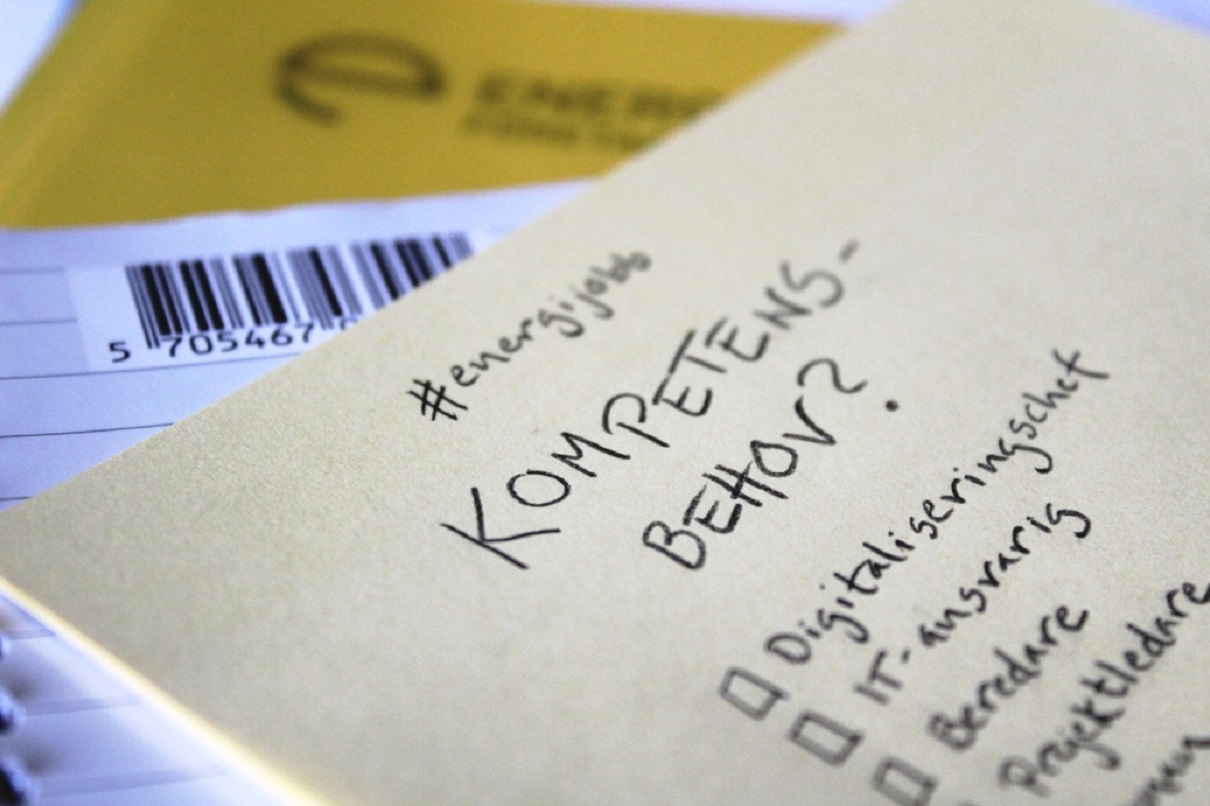 ENERG
5 705467
#energijobb
KOMPETENS-
BEHOV?
Digitaliseringschef
IT-ansvarig
Beredare
Projektledare